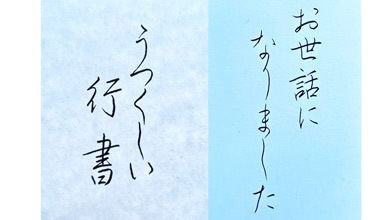 うつくしい
行書
お世話に
なりました